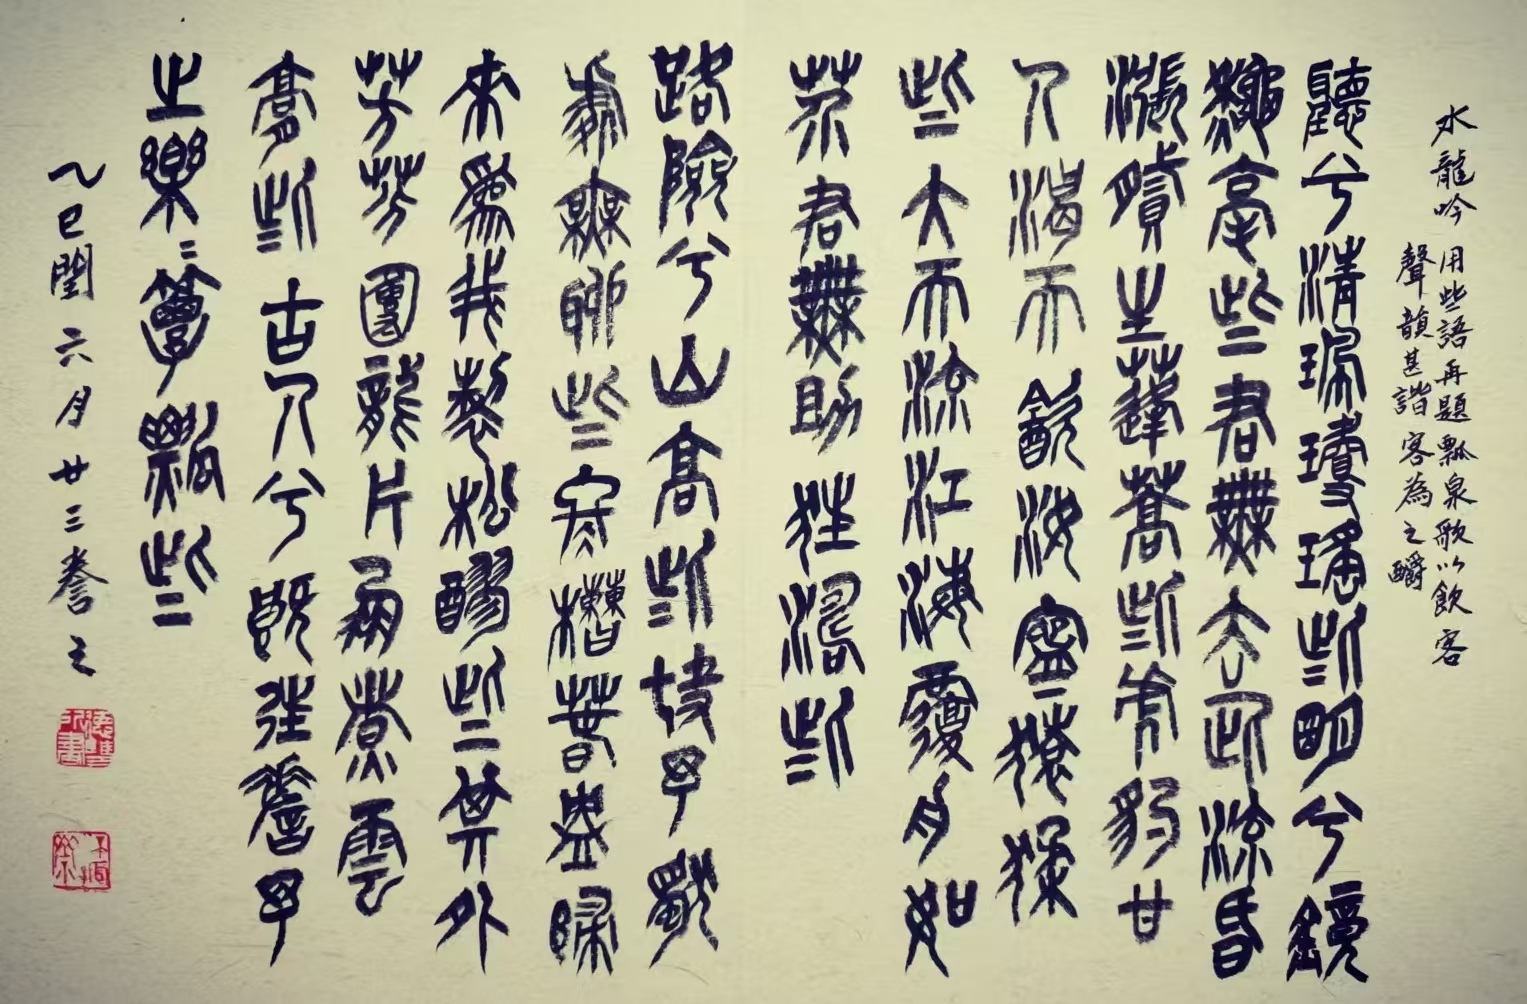 水龍吟 用些語再題瓢泉歌以飲客
聲韻甚諧客為之釂
聽兮清珮瓊瑤些明兮鏡
龝毫些君無去此流昏
漲膩生蓬蒿些虎豹甘
人渴而飲汝寧猿猱
些大而流江海覆舟如
芥君無助狂濤些
路險兮山高些塊予獨
處無聊些冬槽春盎歸
來為我製松醪些其外
芳芬團龍片鳳煮雲
膏些古人兮既往嗟予
之樂〻簞瓢些
乙巳閏六月廿三誊之